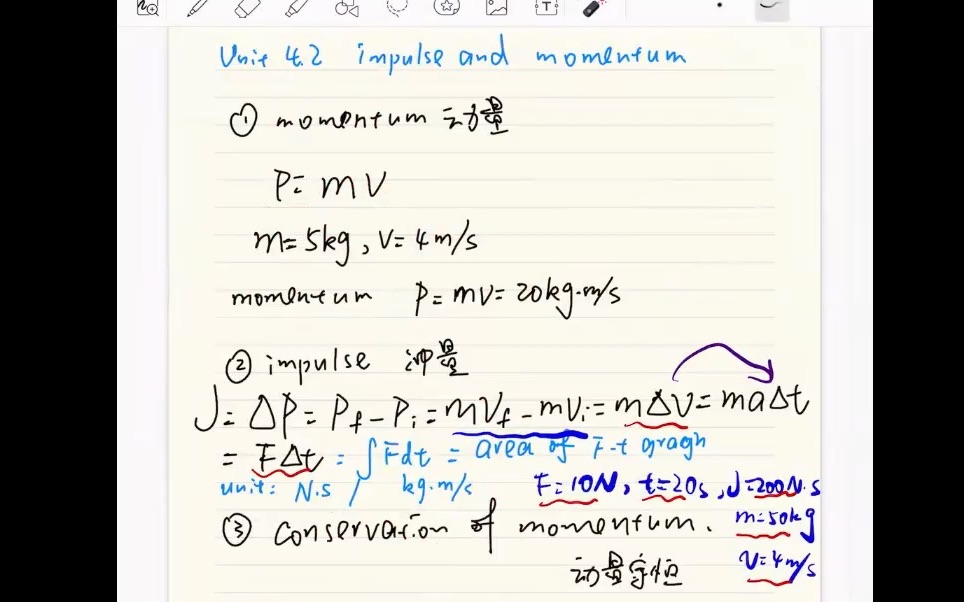 Unit 4.2 impulse and momentum
① momentum 动量
P = mV
m = 5kg, V = 4m/s
momentum P = mV = 20kg·m/s
② impulse 冲量
J = ΔP = Pf - Pi = mVf - mVi = mΔV = maΔt
= FΔt = ∫Fdt = area of F-t gragh
unit: N·s / kg·m/s
F=10N, t=20s, J=200N·s
③ conservation of momentum.
m=50kg
动量守恒
V=4m/s